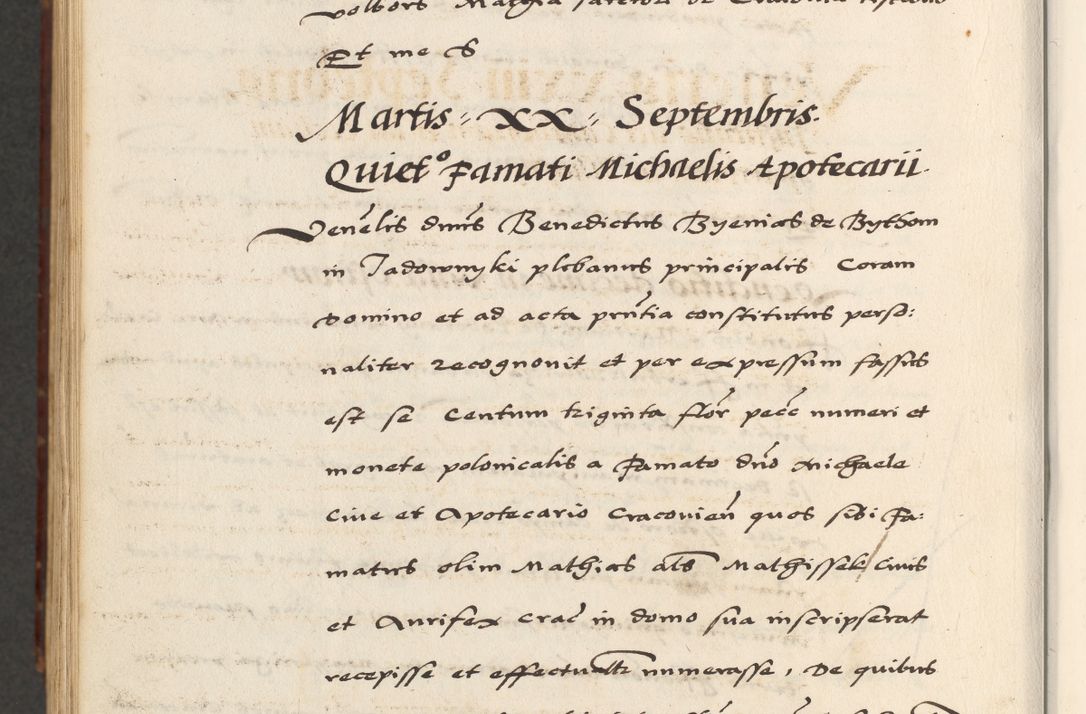 Et me S
Martis XX Septembris.
Quiet⁰ Famati Michaelis Apotecarii.
Venēlis dnūs Benedictus Byenias de Bythom
in Jadownyki plebanus principalis Coram
Domino et ad acta prn̄tia constitutus perso:
naliter recognovit et per expressum fassus
est se Centum triginta flōr pecc̄ numeri et
monete polonicalis a Famato dnō Michaele
Cive et Apotecario Cracovien̄ quos sibi Fa:
matus olim Mathias als̄ Mathissek Civis
et Aurifex Crac̄ in domo sua inscripserat
recepisse et effectualr̄ numerasse, De quibus